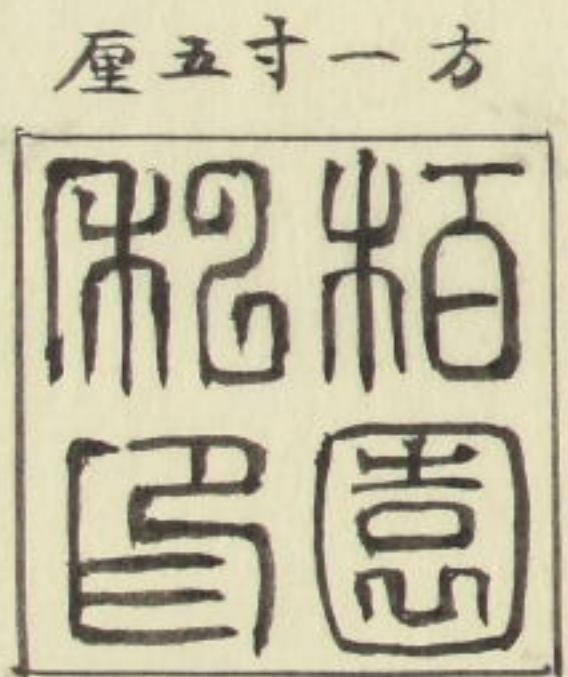 方一寸五厘
栢園
私印